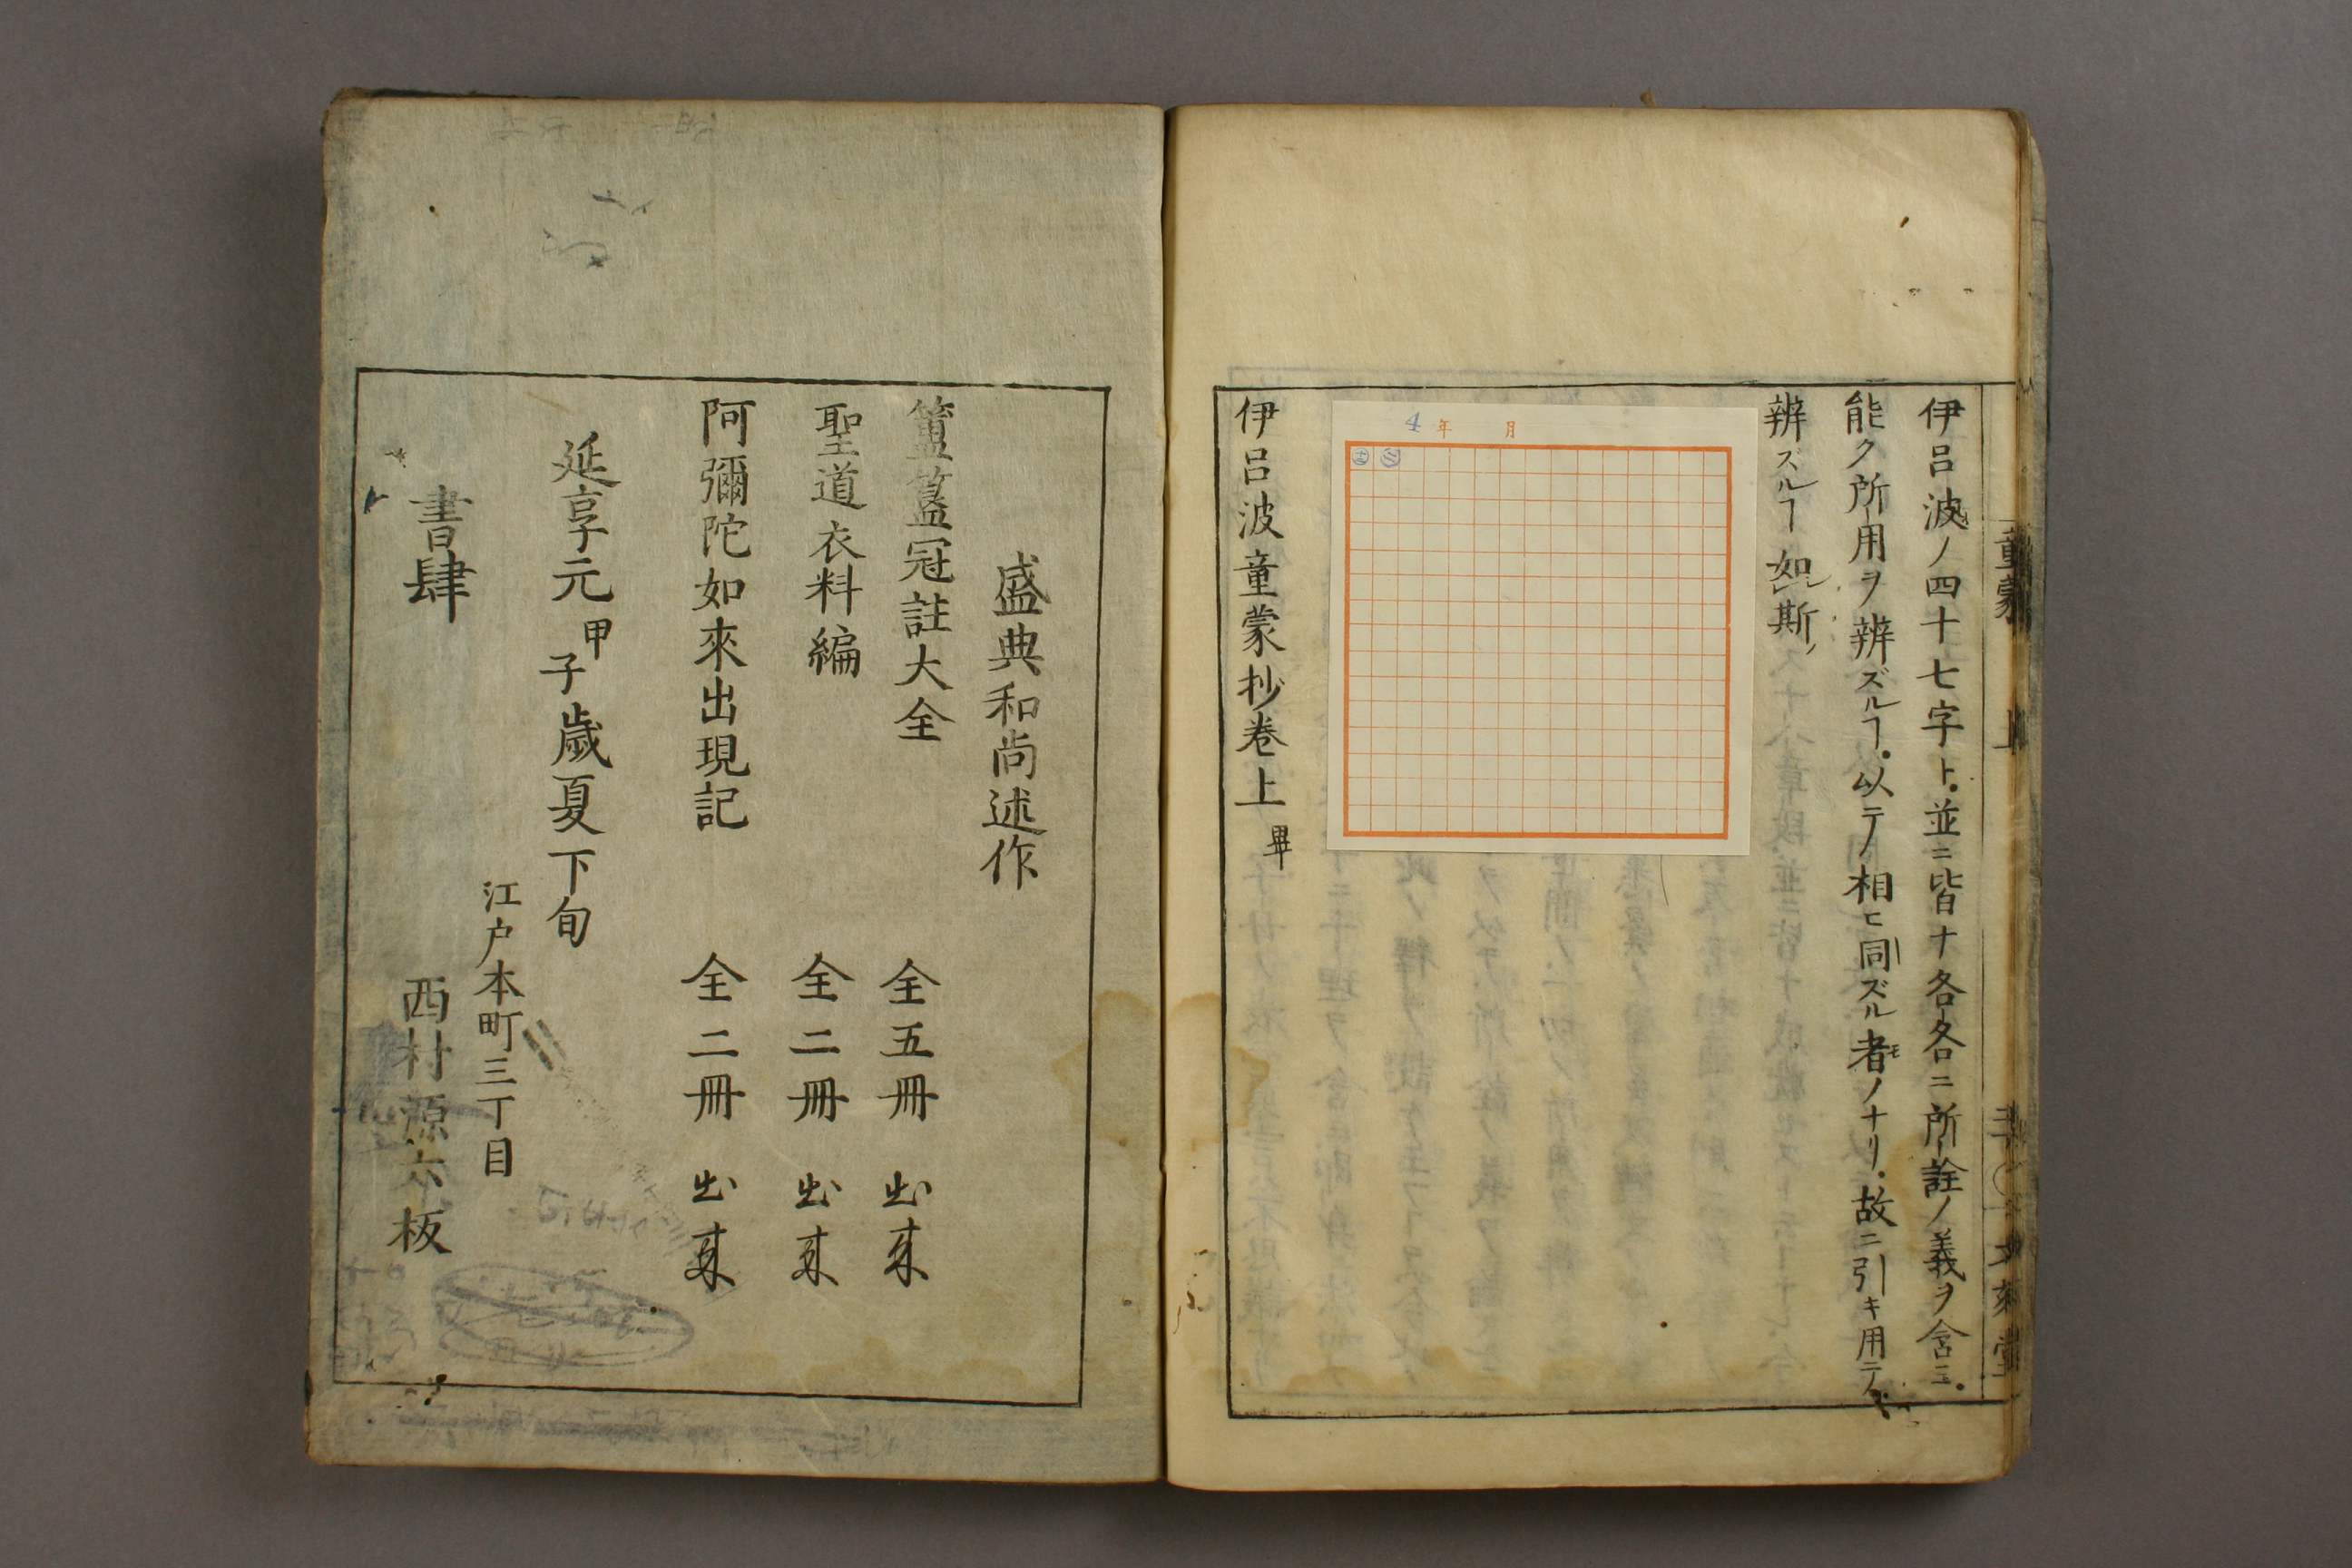 伊呂波ノ四十七字ト並ニ皆ナ各各ニ所詮ノ義ヲ含ミ
能ク所用ヲ辨ズルヿ以テノ相ヒ同ズル者ノナリ故ニ引キ用テ
辨ズルヿ如斯
4年 月
伊呂波童蒙抄卷上畢
盛典和尚述作
簠簋冠註大全 全五冊 出来
聖道衣料編 全二冊 出来
阿彌陀如來出現記 全二冊 出来
延享元甲子歲夏下旬
江戸本町三丁目
書肆 西村源六板